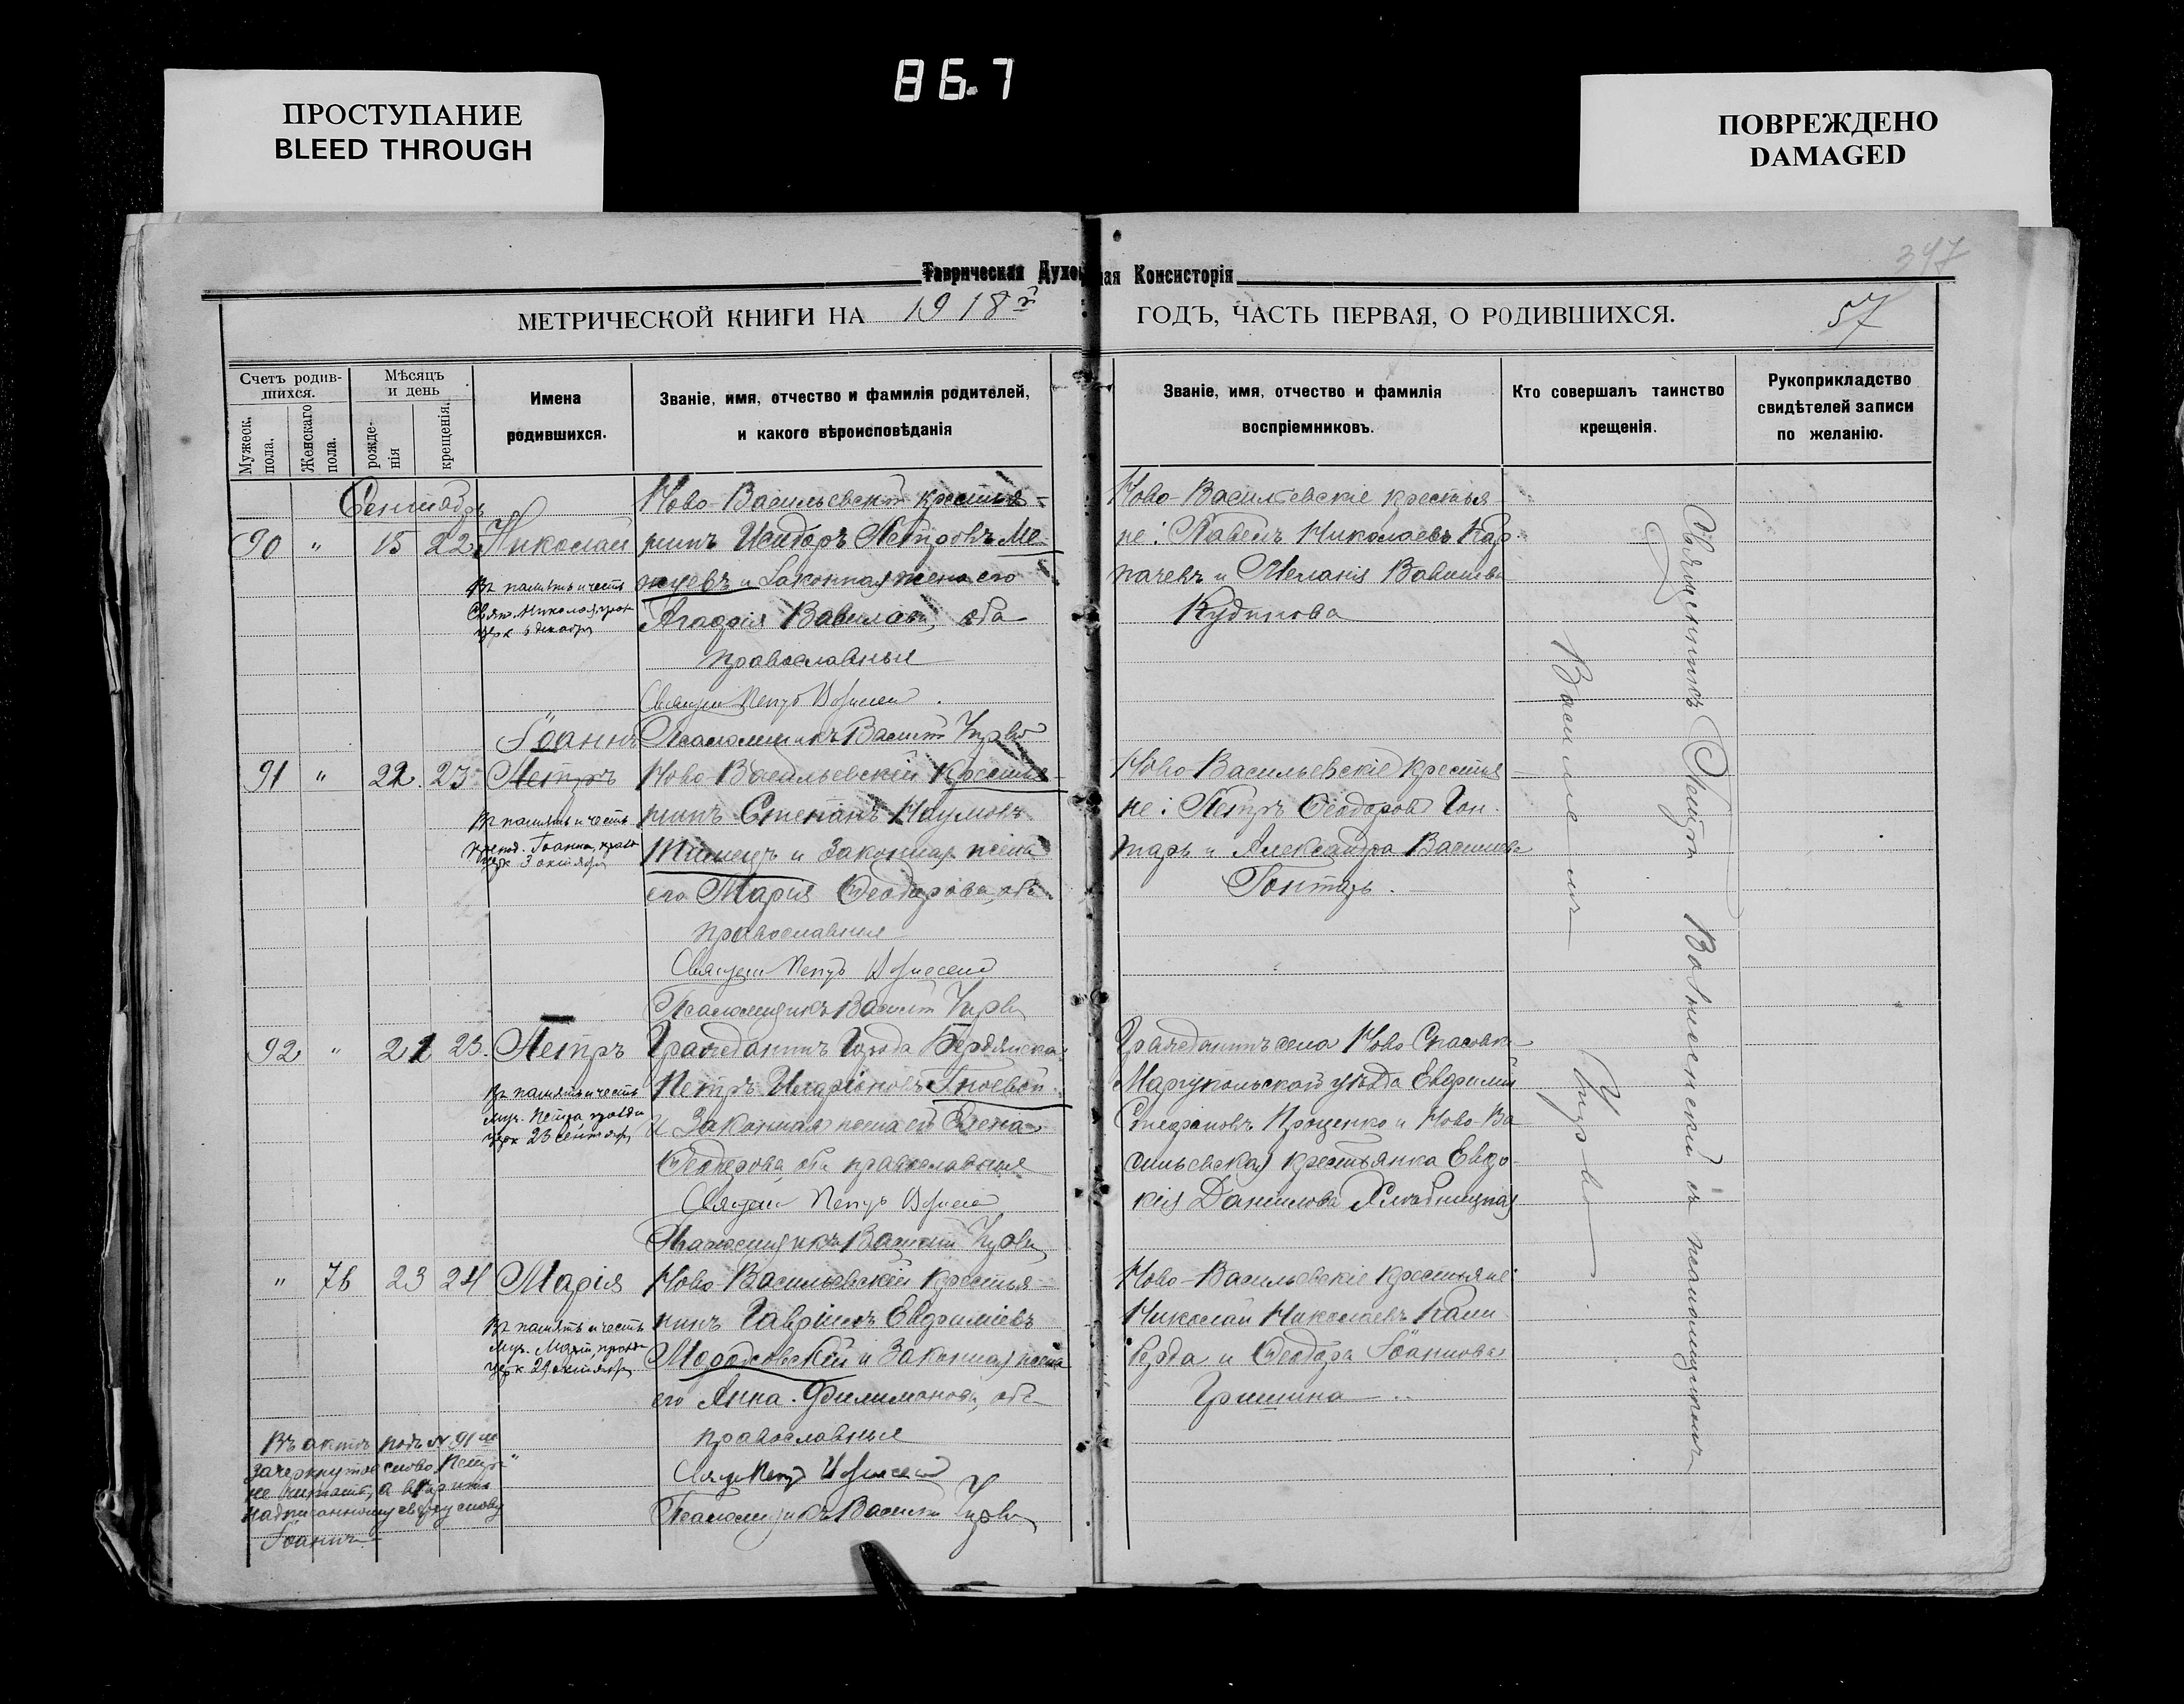 86.7
ПРОСТУПАНИЕ
BLEED THROUGH
ПОВРЕЖДЕНО
DAMAGED
Таврическая Духо ная Консисторія
347
МЕТРИЧЕСКОЙ КНИГИ НА 1918й ГОДЪ, ЧАСТЬ ПЕРВАЯ, О РОДИВШИХСЯ.
57
Счетъ родив-
шихся.
Мужеск.
пола.
Женскаго
пола.
Мѣсяцъ
и день
рожде-
нія
крещенія.
Имена
родившихся.
Званіе, имя, отчество и фамилія родителей,
и какого вѣроисповѣданія
Званіе, имя, отчество и фамилія
воспріемниковъ.
Кто совершалъ таинство
крещенія.
Рукоприкладство
свидѣтелей записи
по желанію.
Сентябрь
90 " 15 22 Николай
Въ память и честь
Свят. Николая, празд
церк 6 декабря
Ново-Васильевскій крестья-
нинъ Исидоръ Петровъ Ме
и Законная жена его
Вавилова, оба
православные
Священ Петръ
Псаломщикъ Василій
Ново-Васильевскіе крестья
не: Павелъ Николаевъ Кар
пачевъ и Меланія
Кудинова
Іоаннъ
91 " 22 23 Петръ
Въ память и честь
препод. Іоанна, празд
церк 3 октября
Ново-Васильевскій крестья-
нинъ Степанъ Наумовъ
и Законная жена
его Марія Ѳеодорова, оба
православные
Священ Петръ
Псаломщикъ Василій
Ново-Васильевскіе крестья-
не: Петръ Ѳеодоровъ Гон
тарь и Александра Васильева
Гонтарь.
92 " 21 23. Петръ
Въ память и честь
муч. Петра празд
церк 23 сентября
Гражданинъ Города Бердянска
Петръ Иларіоновъ Гноевой
и Законная жена его Елена
Ѳеодорова, оба православные
Священ Петръ
Псаломщикъ Василій
Гражданинъ села Ново Спасовки
Маріупольскаго уѣзда Евфимій
Стефановъ Проценко и Ново-Ва
сильевская крестьянка Евдо
кія Данилова
" 76 23 24 Марія
Въ память и честь
церк 29 октября
Ново-Васильевскій крестья-
нинъ Гавріилъ Евфиміевъ
и Законная жена
его Анна Филимонова, оба
православные
Псаломщикъ Василій
Ново-Васильевскіе крестьяне
Николай Николаевъ Кали
берда и Ѳеодора Іоаннова
Гришина
Священникъ Петръ Вознесенскій съ псаломщикомъ
Василіемъ
Въ актѣ подъ № 91м
зачеркнутое слово "Петръ"
не читать, а вѣрить
надписанному сверху слову
Іоаннъ